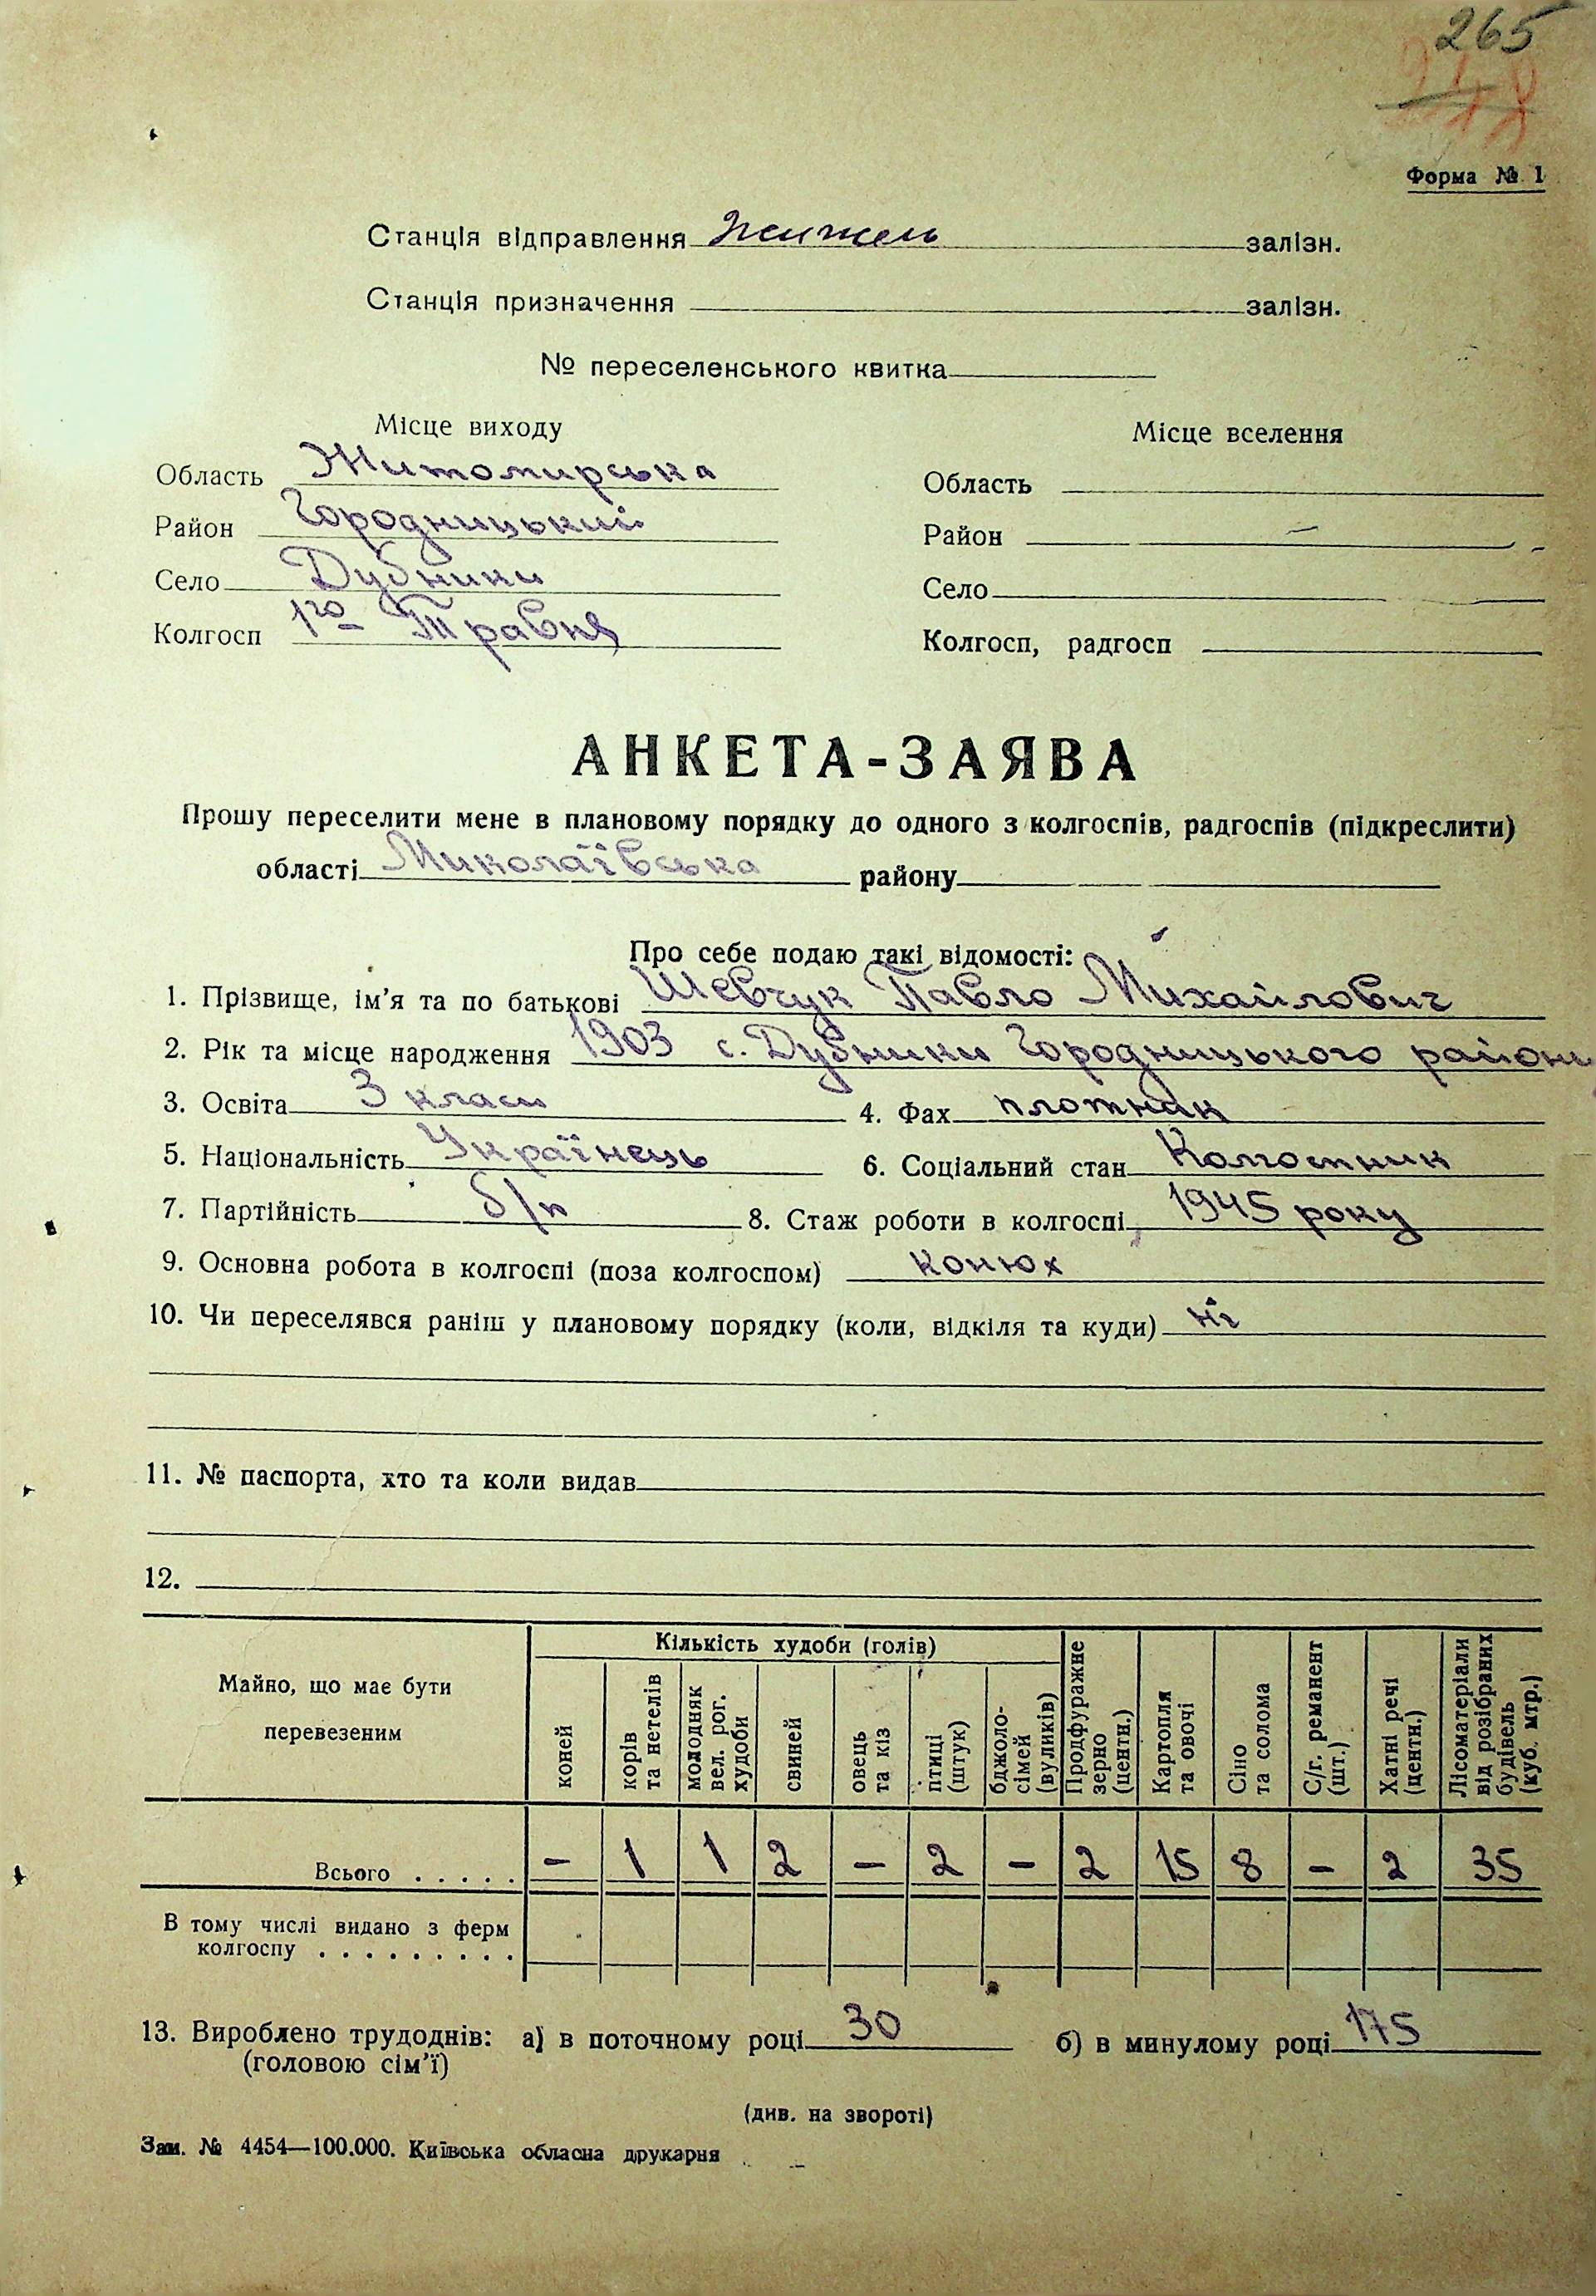 265
248
Форма № 1
Станція відправлення Жижель залізн.
Станція призначення залізн.
№ переселенського квитка
Місце виходу
Місце вселення
Область Житомирська
Область
Район Городницький
Район
Село Дубники
Село
Колгосп 1го Травня
Колгосп, радгосп
АНКЕТА-ЗАЯВА
Прошу переселити мене в плановому порядку до одного з колгоспів, радгоспів (підкреслити)
області Миколаївська району
Про себе подаю такі відомості:
1. Прізвище, ім’я та по батькові Шевчук Павло Михайлович
2. Рік та місце народження 1903 с. Дубники Городницького району
3. Освіта 3 класи 4. Фах плотнік
5. Національність Українець 6. Соціальний стан Колгоспник
7. Партійність б/п 8. Стаж роботи в колгоспі 1945 року
9. Основна робота в колгоспі (поза колгоспом) конюх
10. Чи переселявся раніш у плановому порядку (коли, відкіля та куди) ні
11. № паспорта, хто та коли видав
12.
Майно, що має бути перевезеним
Кількість худоби (голів)
коней
корів та нетелів
молодняк вел. рог. худоби
свиней
овець та кіз
птиці (штук)
бджоло-сімей (вуликів)
Продфуражне зерно (центн.)
Картопля та овочі
Сіно та солома
С/г. реманент (шт.)
Хатні речі (центн.)
Лісоматеріали від розібраних будівель (куб. мтр.)
Всього . . . . . – 1 1 2 – 2 – 2 15 8 – 2 35
В тому числі видано з ферм
колгоспу . . . . . . . . .
13. Вироблено трудоднів: а) в поточному році 30 б) в минулому році 175
(головою сім’ї)
(див. на звороті)
Зам. № 4454—100.000. Київська обласна друкарня